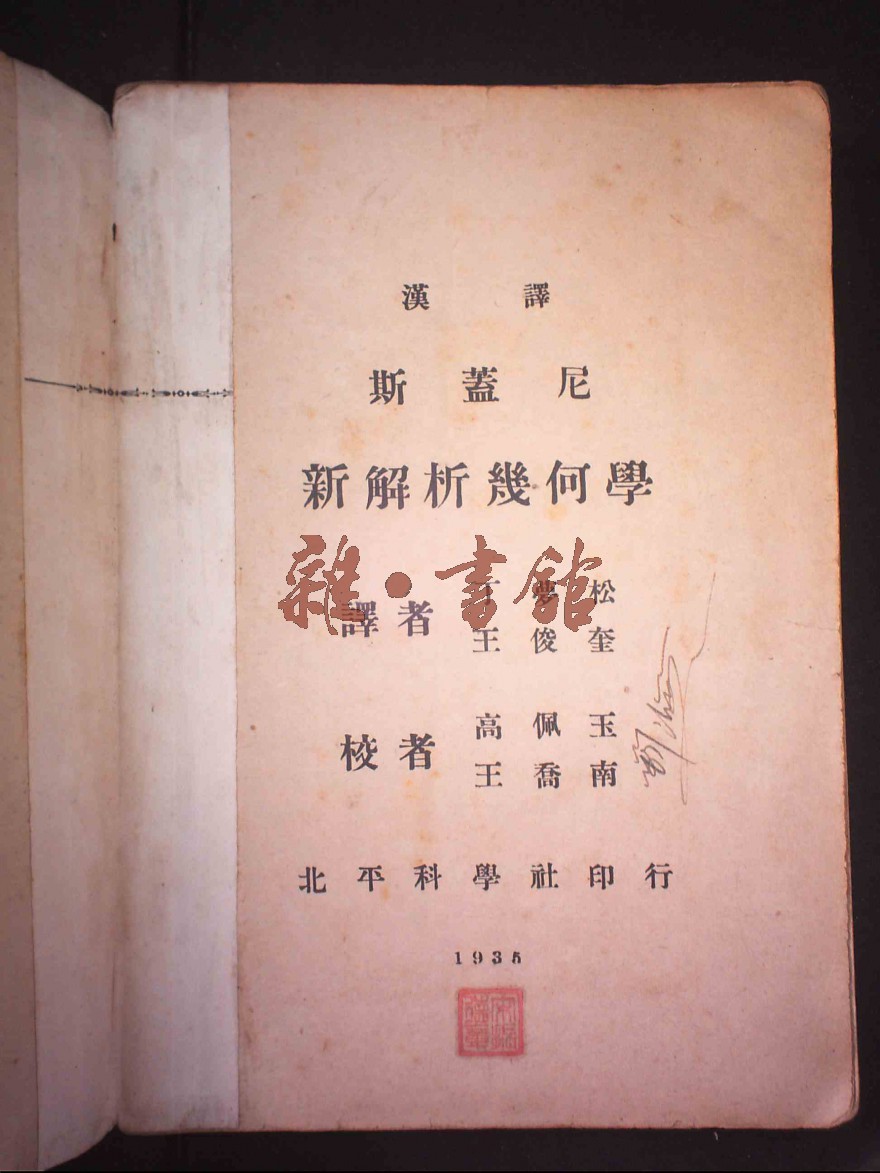 漢譯
斯蓋尼
新解析幾何學
雜·書館
譯者
丁夢松
王俊奎
校者
高佩玉
王喬南
北平科學社印行
1935